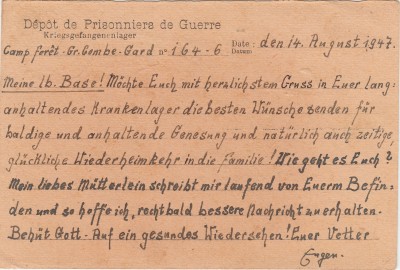 Dépôt de Prisonniers de Guerre
Kriegsgefangenenlager
Camp forêt-Gr.Combe-Gard n° 164-6 Date: den 14. August 1947.
Datum
Meine lb. Base! Möchte Euch mit herzlichstem Gruss in Euer lang-
anhaltendes Krankenlager die besten Wünsche senden für
baldige und anhaltende Genesung und natürlich auch zeitige,
glückliche Wiederheimkehr in die Familie! Wie geht es Euch?
Mein liebes Mütterlein schreibt mir laufend von Euerm Befin-
den und so hoffe ich, recht bald bessere Nachricht zu erhalten.
Behüt Gott - Auf ein gesundes Wiedersehen! Euer Vetter
Eugen.